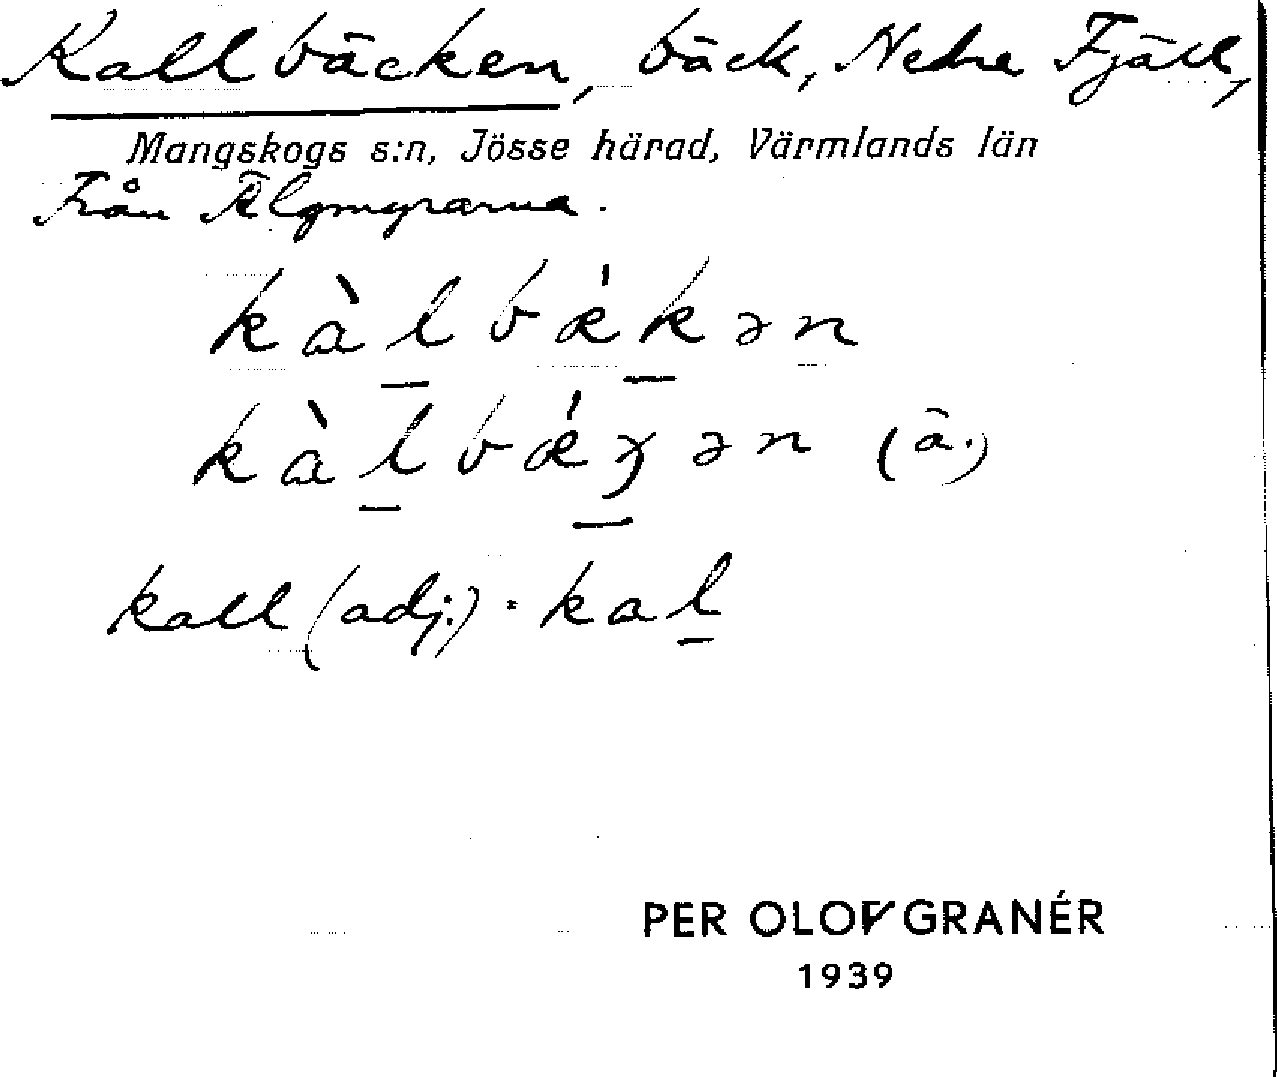 Kallbäcken, bäck, Nedre Fjäll,
Mangskogs s:n, Jösse härad, Värmlands län
Från Älgmyrarna.
kàl̠bǽk̠ən
kàl̠bǽɣ̠ən (ä.)
kall (adj.): kal̠
PER OLOV GRANÉR
1939